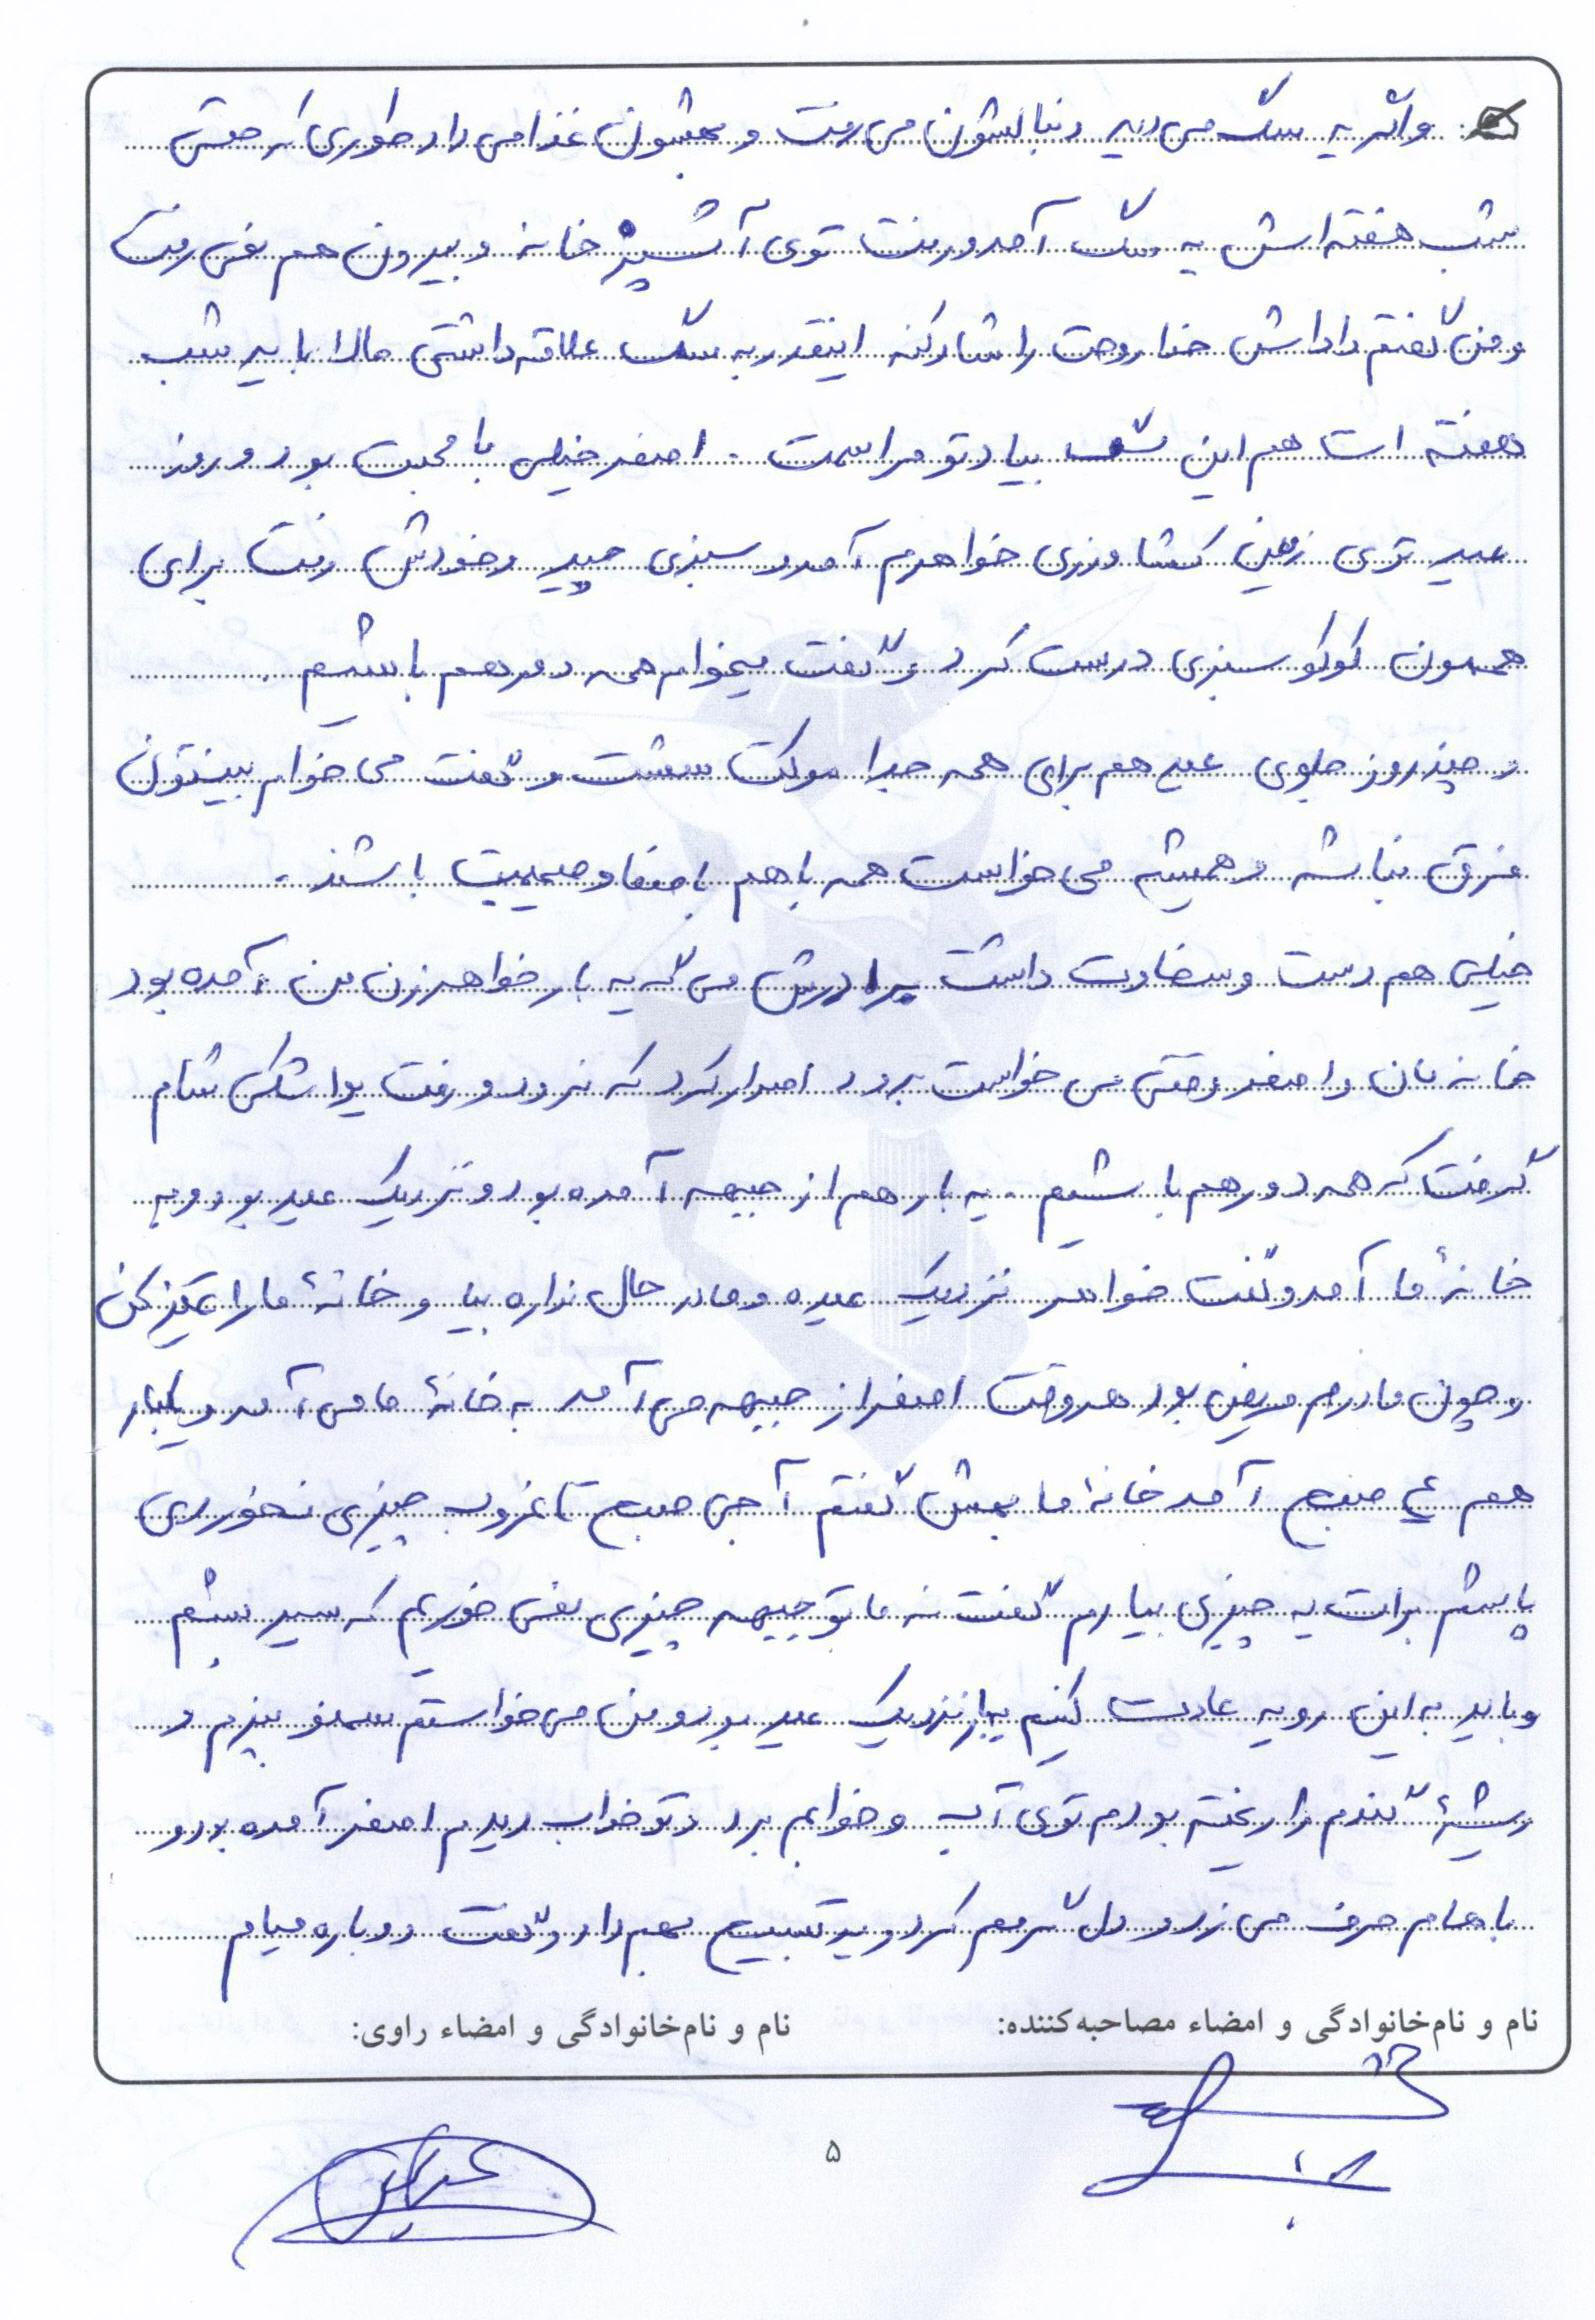 واگر یه سگ می دید دنبالشون می رفت و بهشون غذا می داد طوری که حتی
شب هفته اش یه سگ آمد و رفت توی آشپزخانه و بیرون هم نمی رفت
و من گفتم داداش خدا روحت را شاد کنه اینقدر به سگ علاقه داشتی حالا باید شب
هفته ات هم این سگ بیاد تو مراسمت . اصغر خیلی با محبت بود و روز
عید توی زمین کشاورزی خواهرم آمد و سبزی چید و خودش رفت برای
همه مون کوکو سبزی درست کرد و گفت میخوام همه دور هم باشیم .
و چند روز جلوی عید هم برای همه جدا سوکت نوشت و گفت می خوام بینتون
فرق نباشه و همیشه می خواست همه با هم با صفا و صمیمیت باشند .
خیلی هم دست و سخاوت داشت برادرش می گه یه بار خواهرزن من آمده بود
خانه مان و اصغر وقتی می خواست برود اصرار کرد که نرود و رفت یواشکی شام
گرفت که همه دور هم باشیم . یه بار هم از جبهه آمده بود و نزدیک عید بود و به
خانۀ ما آمد و گفت خواهر نزدیک عیده و مادر حال نداره بیا و خانۀ ما را تمیز کن
و چون مادرم مریض بود هر وقت اصغر از جبهه می آمد به خانۀ ما می آمد و یکبار
هم ۴ صبح آمد خانۀ ما بهش گفتم آجی صبح تا غروب چیزی نخوردی
پاشم برات یه چیزی بیارم گفت نه ما تو جبهه چیزی نمی خوریم که سیر بشیم
و باید به این رویه عادت کنیم یبار نزدیک عید بود و من می خواستم سمنو بپزم و
ریشۀ گندم را ریخته بودم توی آب و خوابم برد و تو خواب دیدم اصغر آمده بود و
باهام حرف می زد و دل گرمم کرد و یه تسبیح بهم داد و گفت دوباره میام
نام و نام‌خانوادگی و امضاء مصاحبه‌کننده:
نام و نام‌خانوادگی و امضاء راوی:
۵